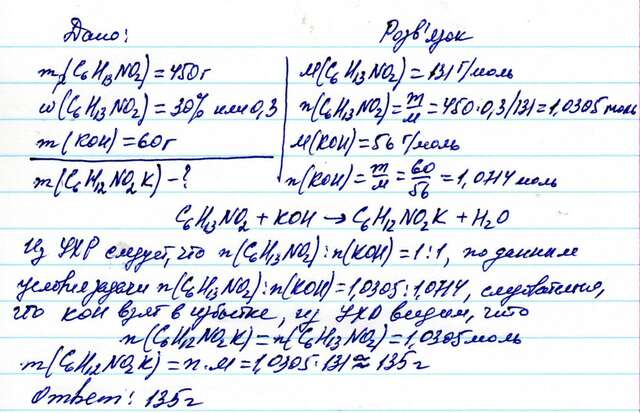 Дано:
Розв'язок
m(C6H13NO2)=450г
ω(C6H13NO2)=30% или 0,3
m(KOH)=60г
m(C6H12NO2K)-?
M(C6H13NO2)=131 г/моль
n(C6H13NO2)=m/M=450·0,3/131=1,0305 моль
M(KOH)=56 г/моль
n(KOH)=m/M=60/56=1,0714 моль
C6H13NO2 + KOH → C6H12NO2K + H2O
Из УХР следует, что n(C6H13NO2):n(KOH)=1:1, по данным
условия задачи n(C6H13NO2):n(KOH)=1,0305:1,0714, следовательно,
что KOH взят в избытке, из УХР видим, что
n(C6H12NO2K)=n(C6H13NO2)=1,0305 моль
m(C6H12NO2K)=n·M=1,0305·131≈135 г
Ответ: 135 г